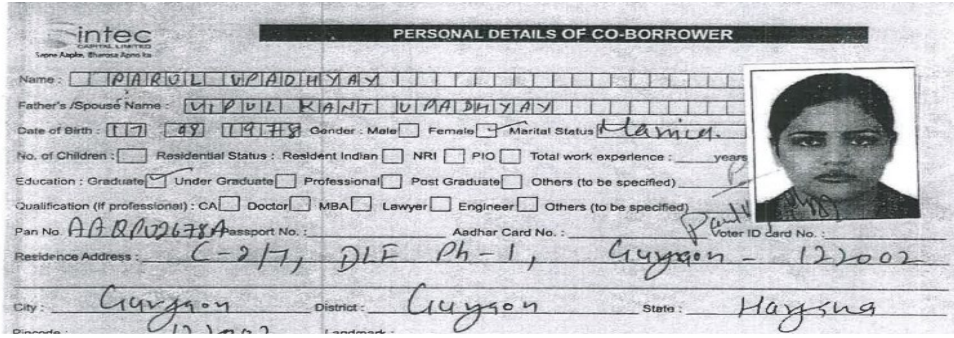 intec
CAPITAL LIMITED
Sapne Aapke, Bharosa Apno ka
PERSONAL DETAILS OF CO-BORROWER
Name : PARUL UPADHYAY
Father's /Spouse Name : VIPUL KANT UPADHYAY
Date of Birth : 17 1978 Gender : Male Female Marital Status
No. of Children : Residential Status : Resident Indian NRI PIO Total work experience : years
Education : Graduate Under Graduate Professional Post Graduate Others (to be specified)
Qualification (if professional) : CA Doctor MBA Lawyer Engineer Others (to be specified)
Pan No. Passport No. : Aadhar Card No. : Voter ID card No. :
Residence Address : C-2/7, DLF Ph-1, Gurgaon - 122002
City : Gurgaon District : Gurgaon State :
Pincode : 122002 Landmark :